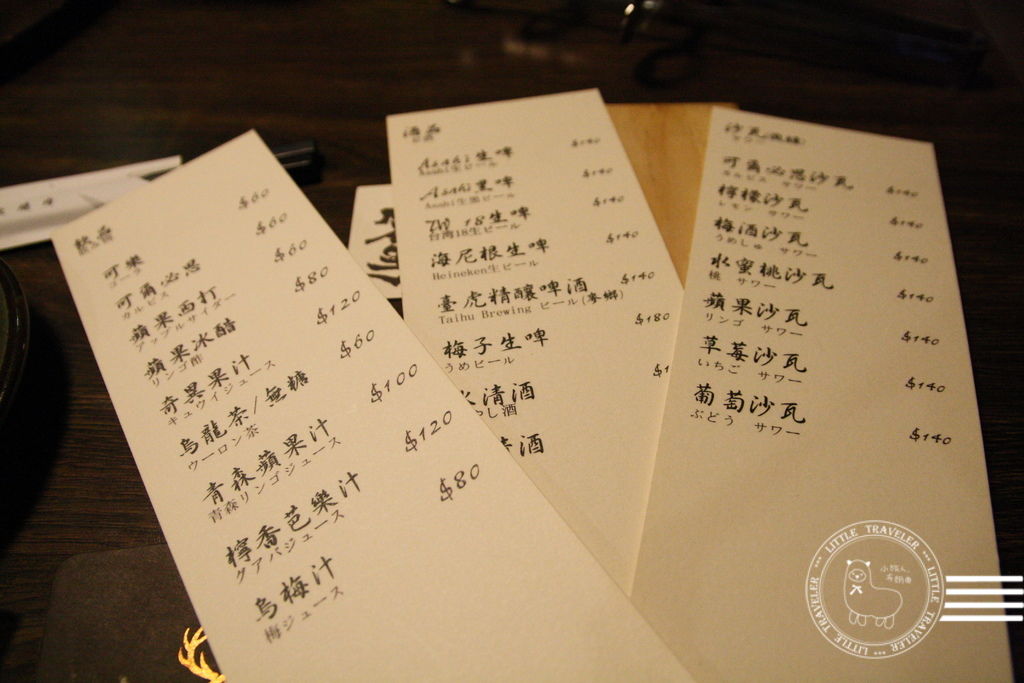 飲品
可樂
コーラ
$60
可爾必思
カルピス
$60
蘋果西打
アップルサイダー
$60
蘋果冰醋
リンゴ酢
$80
奇異果汁
キュウイジュース
$120
烏龍茶/無糖
ウーロン茶
$60
青森蘋果汁
青森リンゴジュース
$100
檸香芭樂汁
グアバジュース
$120
烏梅汁
梅ジュース
$80
酒品
Asahi生啤
Asahi生ビール
$140
Asahi黑啤
Asahi生黒ビール
$140
TW 18生啤
台湾18生ビール
$140
海尼根生啤
Heineken生ビール
$140
臺虎精釀啤酒
Taihu Brewing ビール(麥鄉)
$140
梅子生啤
うめビール
$180
清酒
し酒
$1
酒
沙瓦
サワー
可爾必思沙瓦
カルピス サワー
$140
檸檬沙瓦
レモン サワー
$140
梅酒沙瓦
うめしゅ サワー
$140
水蜜桃沙瓦
桃 サワー
$140
蘋果沙瓦
リンゴ サワー
$140
草莓沙瓦
いちご サワー
$140
葡萄沙瓦
ぶどう サワー
$140
LITTLE TRAVELER
LITTLE TRAVELER
LITTLE TRAVELER
小旅人